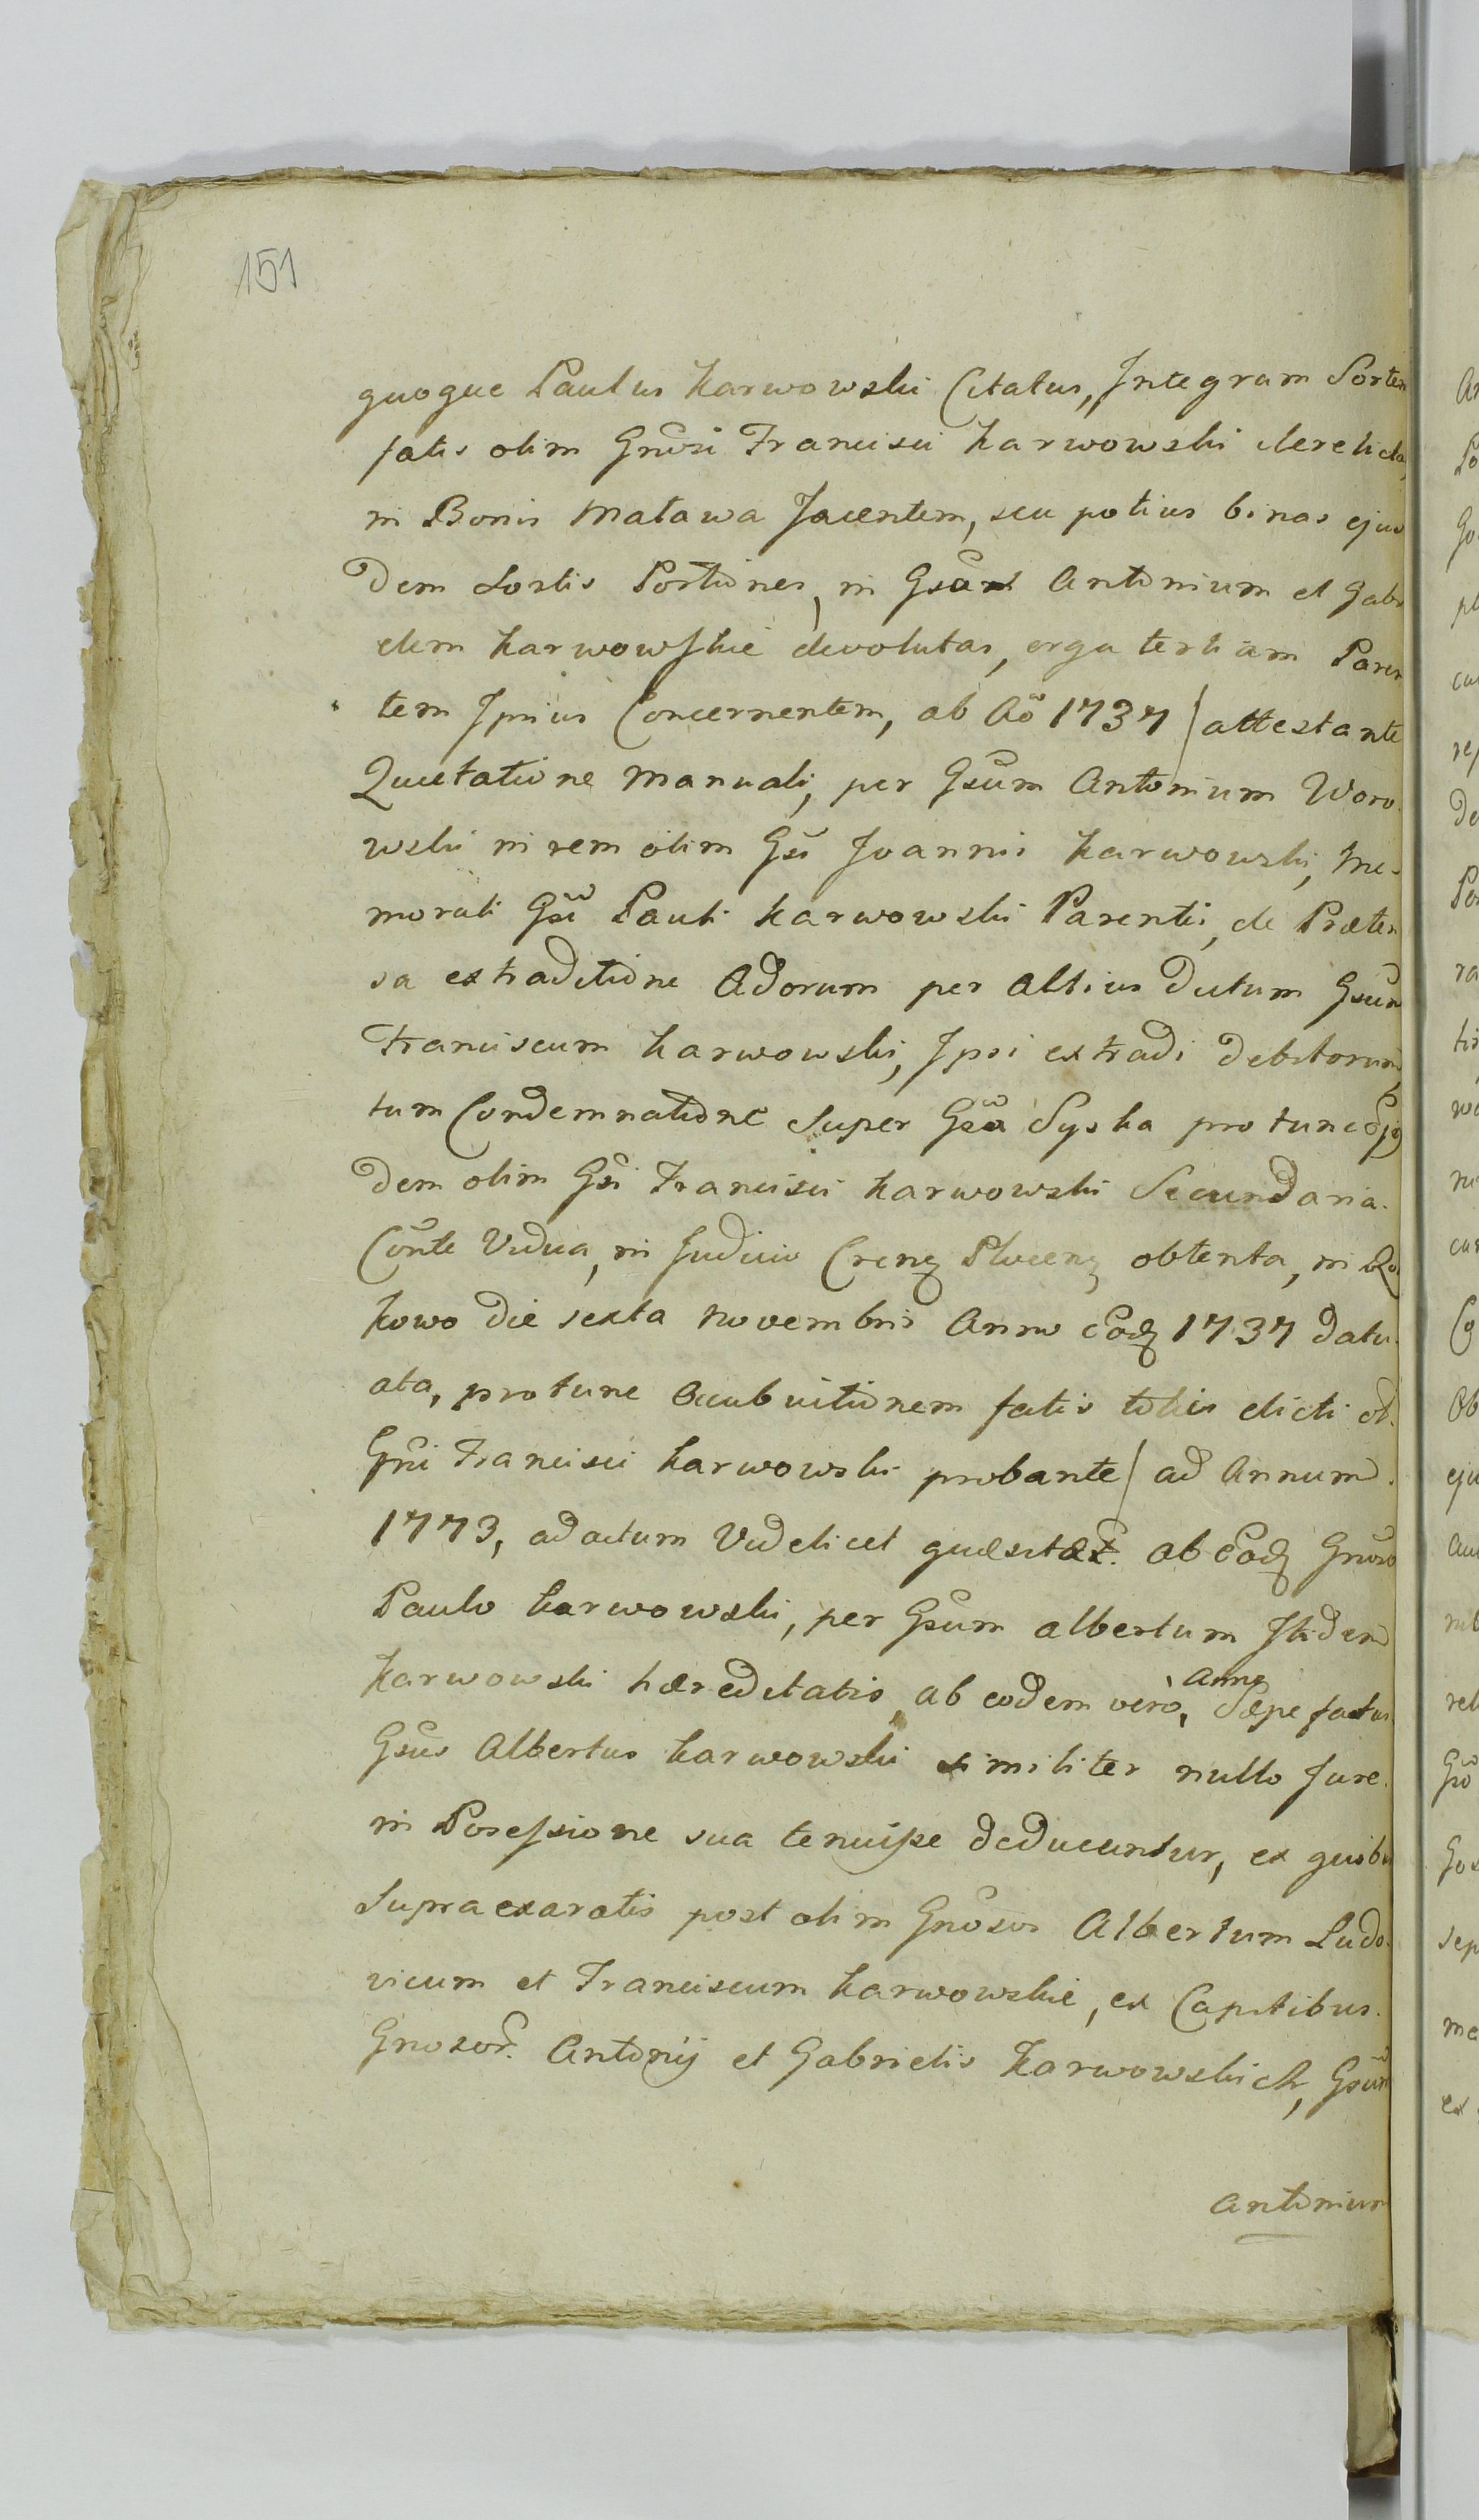 151
quoque Paulus Karwowski Citatus, Integram Sortem
fatis olim Gnosi Francisci Karwowski derelicta,
in Bonis Matawa Jacentem, seu potius binas ejus
dem Sortis Portiones, in Antonium et Gabri
elem Karwowskie devolutas, erga tertiam Paren
tem Ipsius Concernentem, ab Aō 1737 / attestante
Quietatione Manuali, per Gsūm Antonium Woro
wski in rem olim Gsi Joannis Karwowski, Me-
morati Gsi Pauli Karwowski Parentis, de Præten
sa extraditione Actorum per Altius dictum Gsūm
Franciscum Karwowski, Ipsi extradi debitorum,
tum Condemnatione super Gsā Syska protunc
dem olim Gsi Francisci Karwowski Secundaria.
Cōnte Vidua, in Judicio obtenta, in
kowo die sexta Novembris Anno eoḍ 1737 datu.
ata, protunc Accubuitionem fatis toties dicti
Gsi Francisci Karwowski probante / ad Annum.
1773, ad actum Videlicet quæsitæ. ab eoḍ Gnoso
Paulo Karwowski, per Gsūm Albertum Itidem
Karwowski hæreditatis, ab eodem vero, Anno Sæpe fatus
Gsūs Albertus Karwowski similiter nullo Jure.
in Possessione sua tenuisse deducuntur, ex quibu
Supra exaratis post olim Gnosos Albertum Ludo.
vicum et Franciscum Karwowskie, ex Capitibus.
Gnosor. Antonij et Gabrielis Karwowskich, Gsūm
Antonium